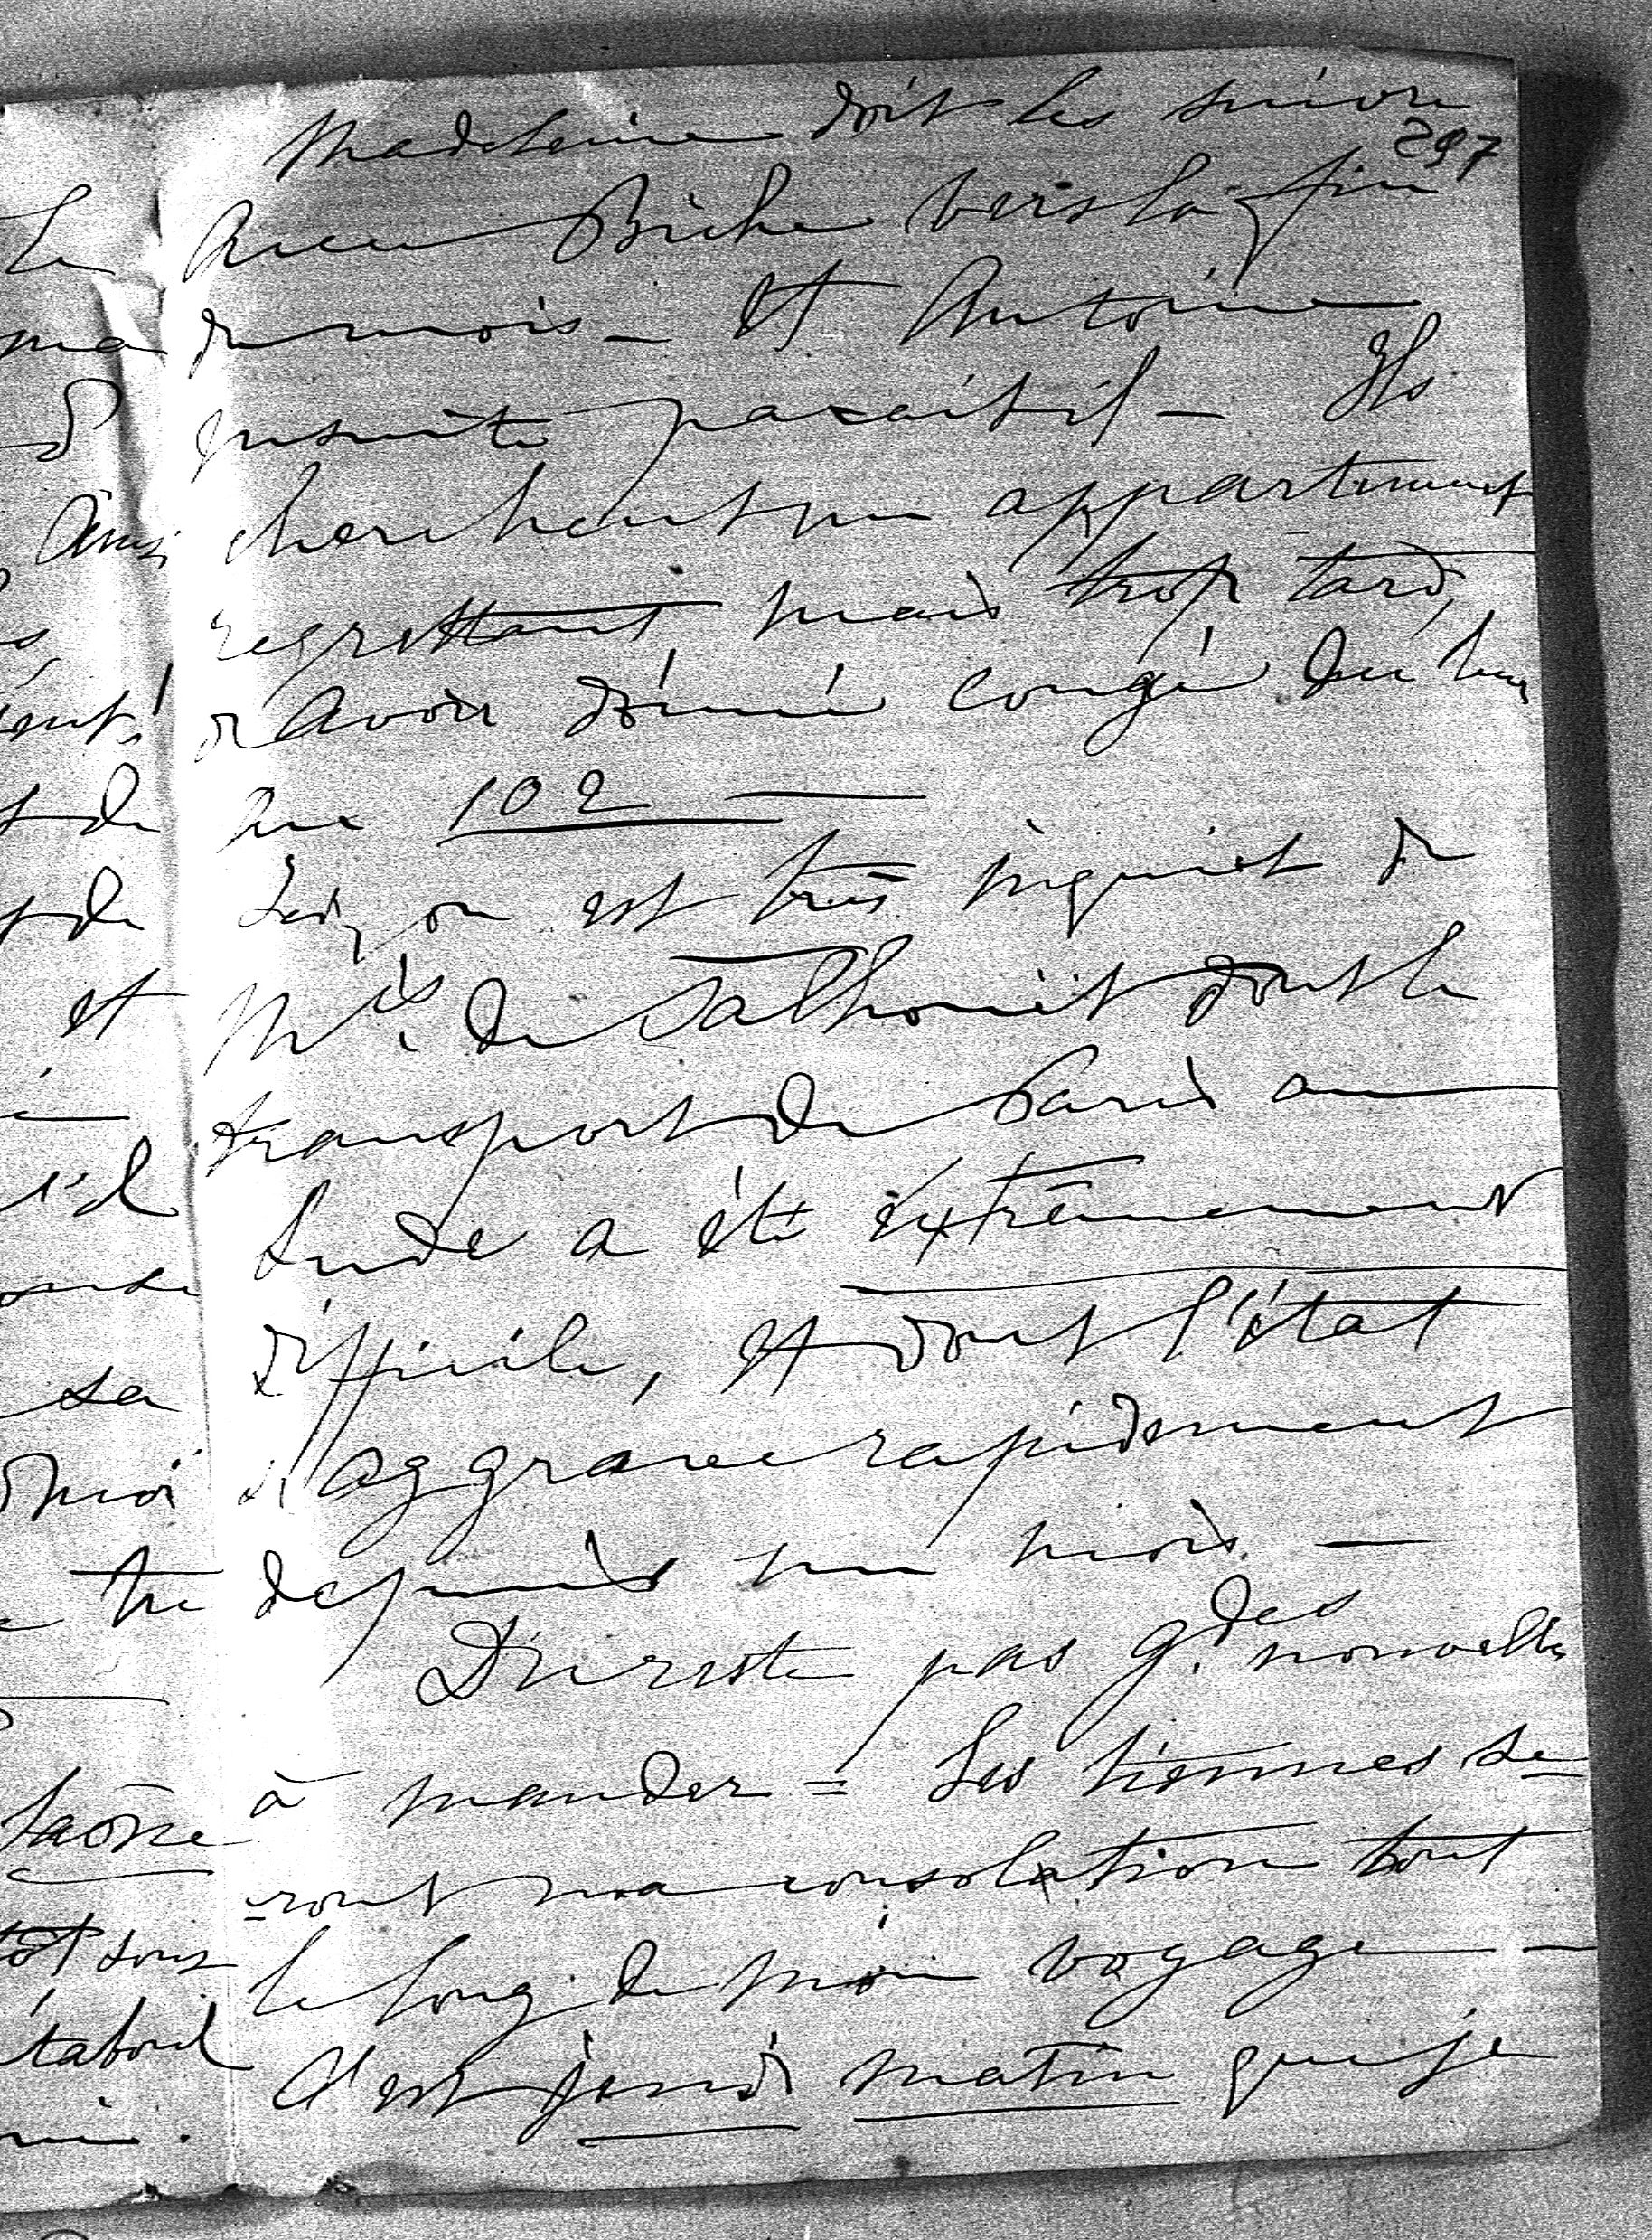 Madeleine doit les suivre
297
avec Biche vers la fin
du mois _ et Antoine
ensuite parait il _ Ils
cherchent un appartement
regrettant mais trop tard,
d'avoir donné congé du leur
Rue 102 —
Ici, on est très inquiet du
Mis de Talhouët dont le
transport de Paris au
Lude a été extrêmement
difficile, et dont l'état
s'aggrave rapidement
depuis un mois —
Du reste pas gdes nouvelles
à mander = Les tiennes se-
-ront ma consolation tout
le long de mon voyage —
C'est jeudi matin que je